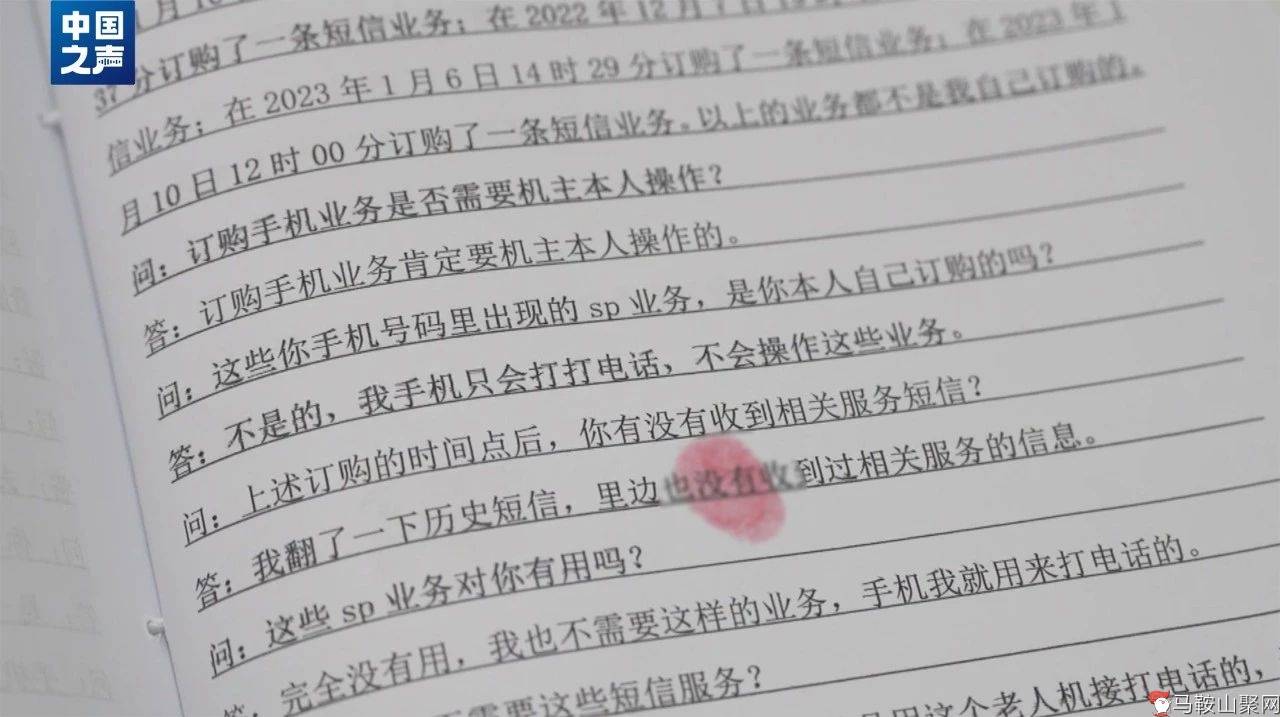 中国
之声
37分订购了一条短信业务；在 2022 年 12 月 7 日
信业务；在 2023 年 1 月 6 日 14 时 29 分订购了一条短信业务；在 2023 年 1
月 10 日 12 时 00 分订购了一条短信业务。以上的业务都不是我自己订购的。
问：订购手机业务是否需要机主本人操作？
答：订购手机业务肯定要机主本人操作的。
问：这些你手机号码里出现的 sp 业务，是你本人自己订购的吗？
答：不是的，我手机只会打打电话，不会操作这些业务。
问：上述订购的时间点后，你有没有收到相关服务短信？
答：我翻了一下历史短信，里边也没有收到过相关服务的信息。
问：这些 sp 业务对你有用吗？
答：完全没有用，我也不需要这样的业务，手机我就用来打电话的。
需要这些短信服务？
用这个老人机接打电话的，
马鞍山聚网